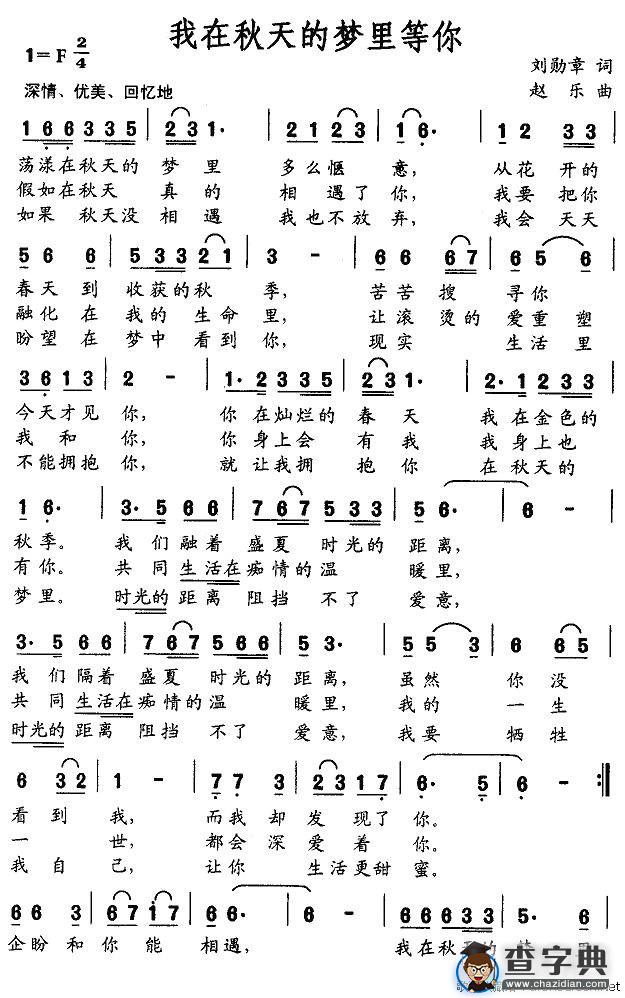 我在秋天的梦里等你
1=F 2/4
刘勋章 词
深情、优美、回忆地
赵乐 曲
1 6 6 3 3 5 | 2 3 1· | 2 1 2 3 | 1 6· | 1 2 3 3 |
荡漾在秋天的 梦 里 多么惬 意, 从花 开的
假如在秋天 真的 相 遇了你, 我要 把你
如果 秋天没 相遇 我也不放弃, 我会 天天
5 6 6 | 5 3 3 2 1 | 3 - | 6 6 6 7 | 6 5 6 |
春天 到 收获的秋 季, 苦苦 搜 寻你
融化 在 我的 生命 里, 让滚 烫的 爱重 塑
盼望 在 梦中 看到 你, 现实 生活 里
3 6 1 3 | 2 - | 1· 2 3 3 5 | 2 3 1· | 2· 1 2 3 |
今天才见 你, 你 在灿烂的 春 天 我 在金色的
我 和 你, 你 身上会 有 我 我 身上也
不能拥抱 你, 就 让我拥 抱 你 在 秋天的
1 6· | 3· 5 6 6 | 7 6 7 5 3 3 | 5 6· | 6 - |
秋季。 我 们融着 盛夏 时光的 距离,
有你。 共 同 生活在痴情的温 暖里,
梦里。 时光的 距离 阻挡 不了 爱意,
3· 5 6 6 | 7 6 7 5 6 6 | 5 3· | 5 5 3 | 6 6 5 |
我 们隔着 盛夏 时光的 距离, 虽然 你没
共 同 生活在痴情的温 暖里, 我的 一生
时光的 距离 阻挡 不了 爱意, 我要 牺牲
6 3 2 | 1 - | 7 7 3 | 2 3 1 7 | 6· 5 | 6 - :‖
看到 我, 而我 却 发 现了 你。
一 世, 都会 深 爱 着 你。
我自 己, 让你 生活更甜 蜜。
6 6 3 | 6 7 i 7 | 6 6· | 6 - | 6 6 6 3 3 |
企盼 和 你 能 相遇, 我在秋天的
查字典
www.chazidian.com